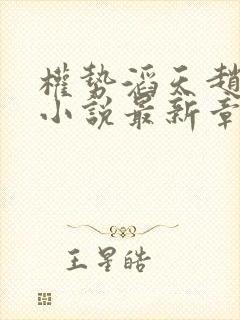 權勢滔天趙
小說最新章
王星皓